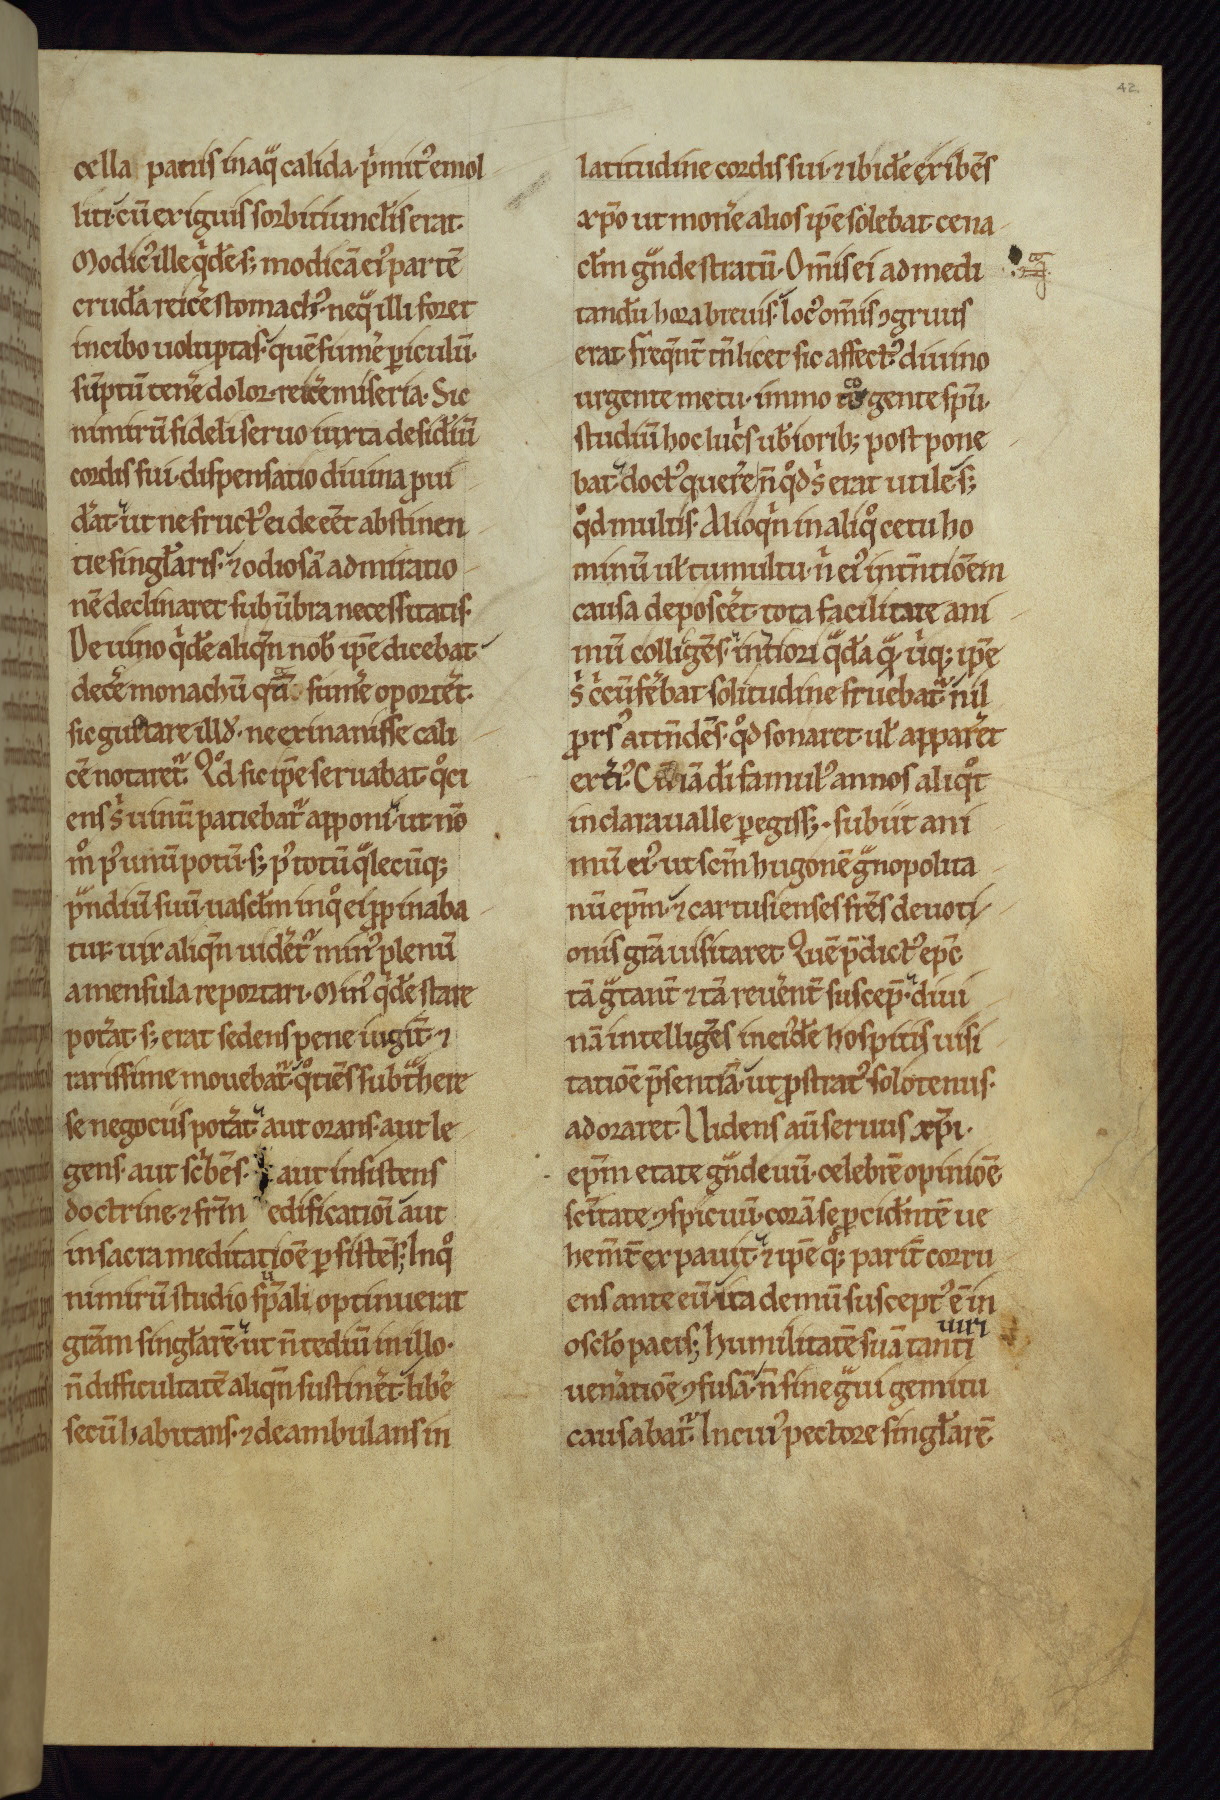 42
cella patiis in aq̃ calida · p̾mit᷒ emol
liti · cū exiguis sorbitiunclis erat ·
Modic᷒ ille q̾dē · s; modicā ei᷒ partē
cruda reic̄e stomach᷒ · neq̃ illi foret
in cibo uoluptas · quē sum̄e ꝑiculū ·
sūptū ten̄e dolor · reic̄e miseria · Sic
nimirū fideli seruo iuxta desid̾iū
cordis sui · dispensatio diuina ꝓui
d̾at · ut ne fruct᷒ ei deēet abstinen
tie singlaris · ⁊ odiosā admiratio
nē declinaret sub ūbra necessitatis ·
De uino q̾dē aliqn̄ nob̾ ip̄e dicebat
dec̄e monachū sum̄e oport̄et ·
sic gustare illd̾ · ne exinanisse cali
cē notaret᷑ · Qd̊ sic ip̄e seruabat · q̊ci
ens s̾ uinū patiebat᷑ apponi · ut nō
m̊ p᷒ unū potū · s; p᷒ totū q̃lecūq;
p̃ndiū suū · uasclm in q̊ ei ꝓpinaba
tur · uix aliqn̄ uid̄et᷑ min᷒ plenū
a mensula reportari · Min᷒ q̾dē stare
pot̾at · s; erat sedens pene iugit̄ · ⁊
rarissime mouebat᷑ · q̊tiēs subt̾here
se negociis pot̾at · aut orans · aut le
gens · aut sc̾bēs · aut insistens
doctrine · ⁊ fr̄m edificatiōi aut
in sacra meditatiōe ꝑsistēs; In q̊
nimirū studio sp̄uali optinuerat
grām singlarē · ut n̄ tediū in illo ·
n̄ difficultatē aliqn̄ sustin̄et · lib̄e
secū habitans · ⁊ deambulans in
latitudine cordis sui · ⁊ ibidē exibēs
xp̄o ut mon̄e alios ip̄e solebat · cena
clm g̃nde stratū · Om̄is ei ad medi
tandū hora breuis · loc᷒ om̄is ꝯgruus
erat · freq̄nt̄ tn̄ licet sic affect᷒ diuino
urgente metu · immo cogente sp̄u ·
studiū hoc luc̾s ub̾ioribꝫ post pone
bat · doct᷒ quer̄e n̄ qd̊ s̾ erat utile s;
qd̊ multis · Alioq̾n in aliq̊ cetu ho
minū ul̾ tumultu · n̾ ei᷒ int̄ntiōem
causa deposc̄et · tota facilitate ani
mū colligēs · int̾iori q̃dā q̃ · u̾q; ip̄e
s̾ c̾cūf̄ebat solitudine fruebat᷑ · nil
ꝓrs᷒ attn̄dēs · qd̊ sonaret · ul̾ appar̄et
ext̾i᷒ · iā di famul᷒ annos aliq̊t
in claraualle ꝑegiss; · subiit ani
mū ei᷒ · ut sc̄m hugonē g̃nopolita
nū ep̄m · ⁊ cartusienses fr̄es deuoti
onis grā uisitaret · Quē p̄dict᷒ ep̄c
tā g̃tant̄ ⁊ tā reu̾ent̄ suscep̄ · diui
nā intelligēs ineidē hospitis uisi
tatiōe p̄sentiā · ut ꝓstrat᷒ solotenus ·
adoraret · Uidens aū seruus xp̄i ·
ep̄m etate g̃ndeuū · celebrē opiniōe
sc̄itate ꝯspicuū · corā se ꝓcid̾ntē ue
hem̄t̄ expauit · ⁊ ip̄e q̊q; parit̄ corru
ens ante eū · ita demū suscept᷒ ē in
osclo pacis; humilitatē suā tanti
uiri
uen̾atiōe ꝯfusā · n̄ sine g̃ui gemitu
causabat᷑ · In cui᷒ pectore singlarē